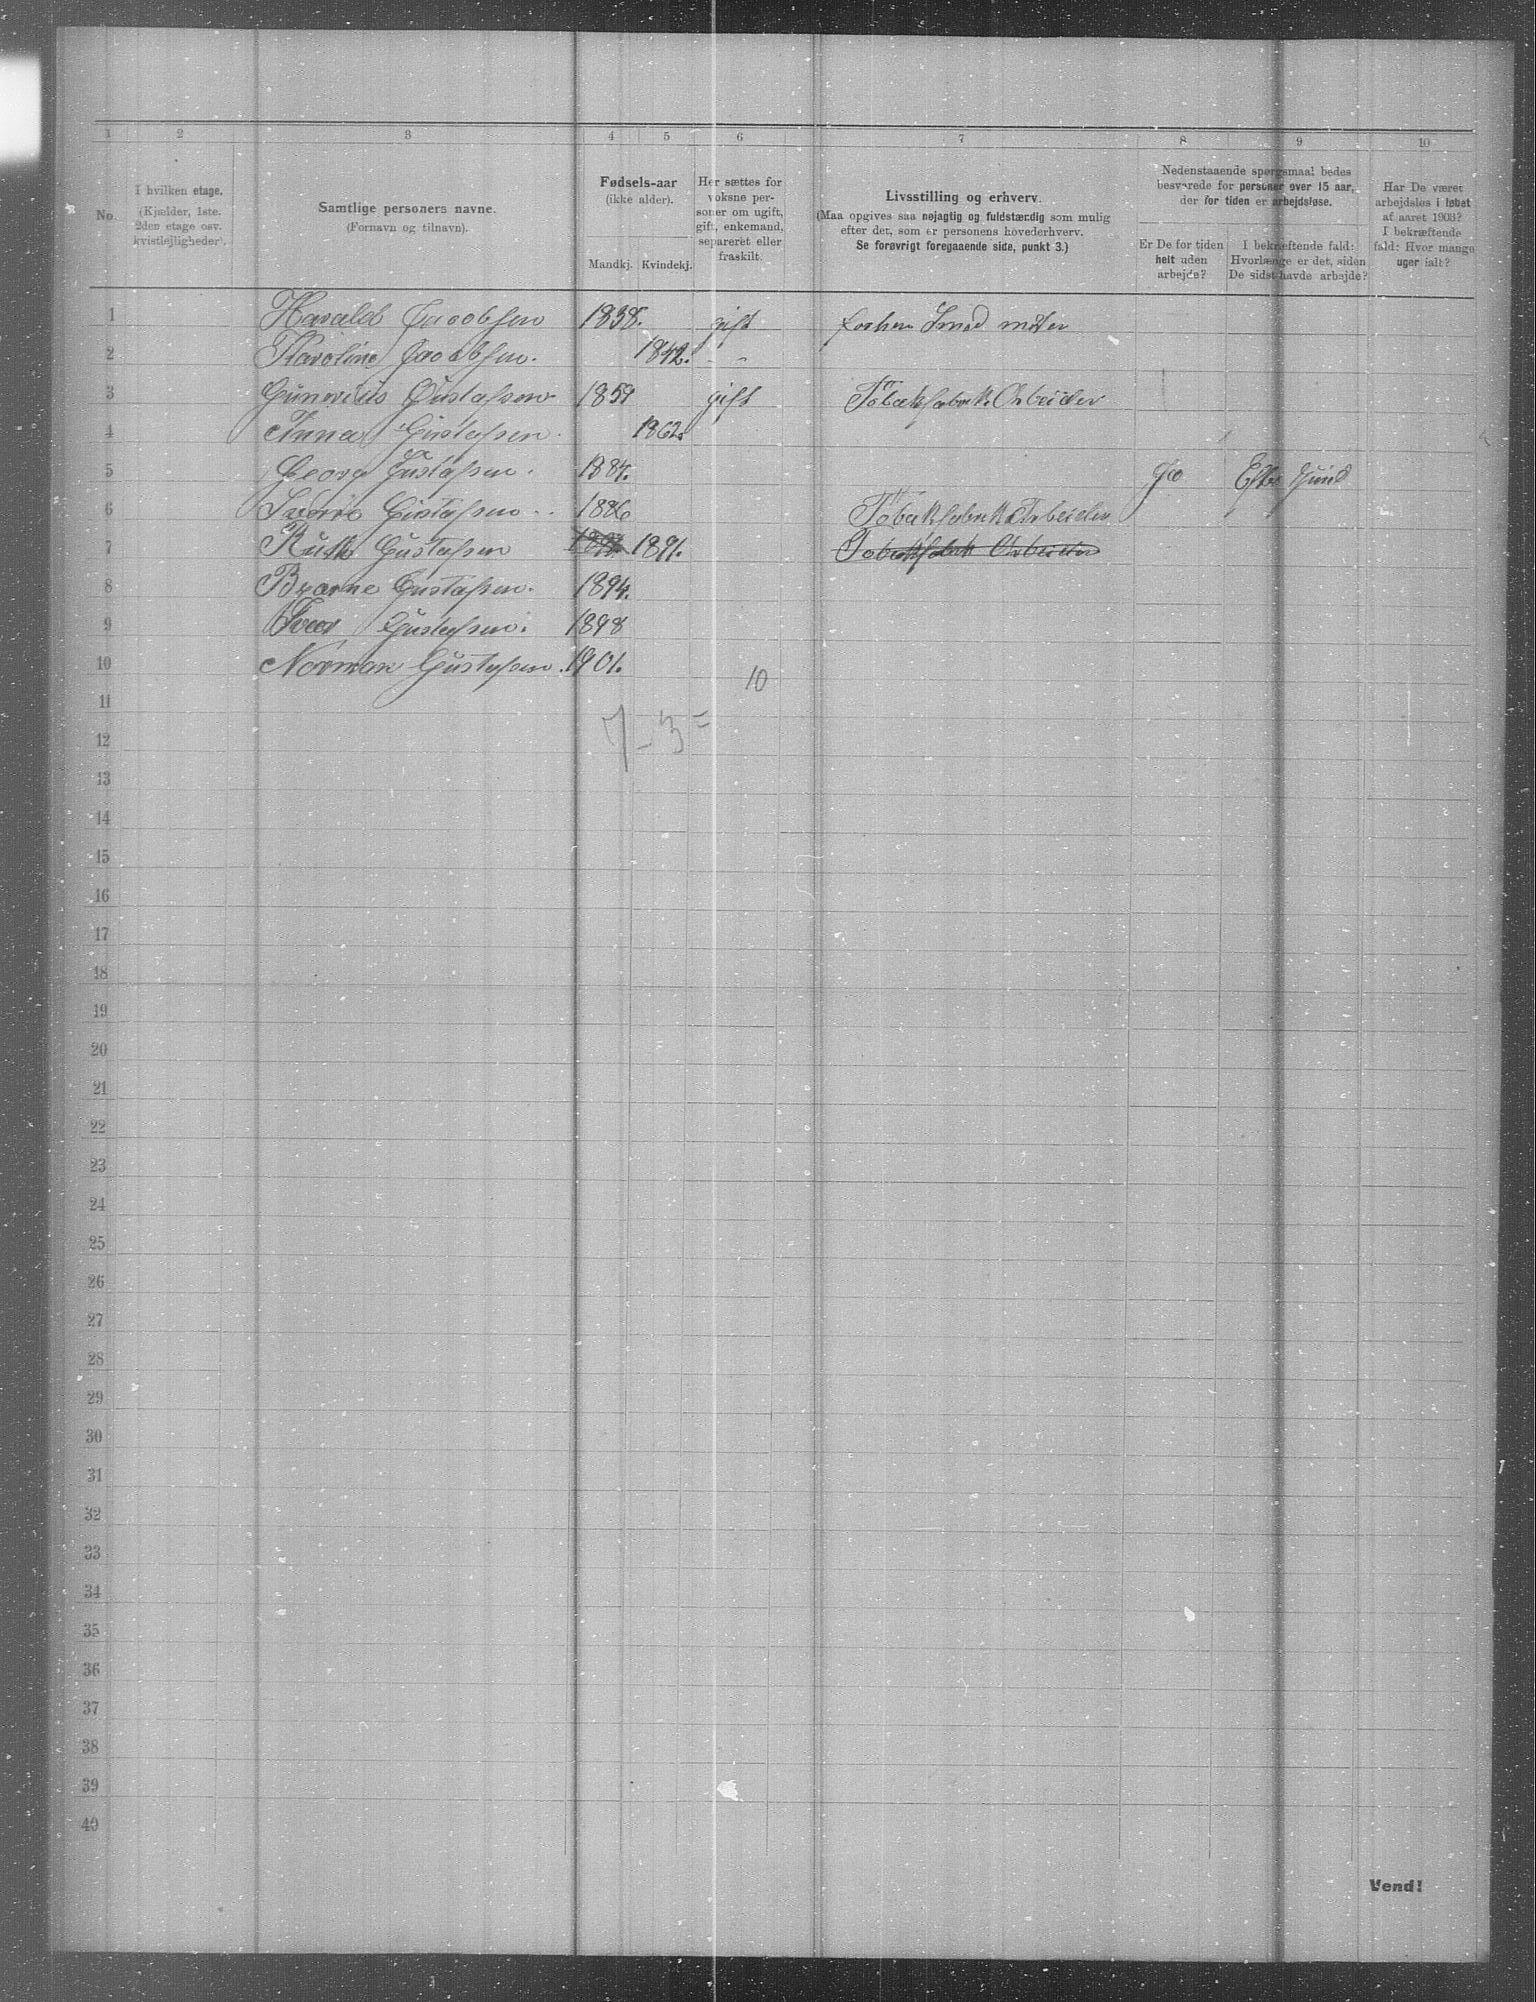 1 2 3 4 5 6 7 8 9 10
No.
I hvilken etage.
(Kjælder, 1ste.
2den etage osv.
kvistlejligheder).
Samtlige personers navne.
(Fornavn og tilnavn).
Fødsels-aar
(ikke alder).
Mandkj. Kvindekj.
Her sættes for
voksne per-
soner om ugift,
gift, enkemand,
separeret eller
fraskilt.
Livsstilling og erhverv.
(Maa opgives saa nøjagtig og fuldstændig som mulig
efter det, som er personens hovederhverv.
Se forøvrigt foregaaende side, punkt 3.)
Nedenstaaende spørgsmaal bedes
besvarede for personer over 15 aar,
der for tiden er arbejdsløse.
Er De for tiden
helt uden
arbejde?
I bekræftende fald:
Hvorlænge er det, siden
De sidst havde arbejde?
Har De været
arbejdsløs i løbet
af aaret 1903?
I bekræftende
fald: Hvor mange
uger ialt?
1 Harald Jacobsen 1838. gift Smed
2 Karoline Jacobsen. 1842. - "
3 Gustafsen 1859 gift Tobaksfabrik Arbeider
4 Anna Gustafsen. 1862.
5 Georg Gustafsen. 1884. Ja
6 Gustafsen 1886 Tobaksfabrik Arbeider
7 Ruth Gustafsen 1891. Tobaksfabrik Arbeider
8 Bjarne Gustafsen. 1894.
9 Gustafsen. 1898
10 Norman Gustafsen. 1901.
10
11
7 - 3 =
12
13
14
15
16
17
18
19
20
21
22
23
24
25
26
27
28
29
30
31
32
33
34
35
36
37
38
39
40
Vend!